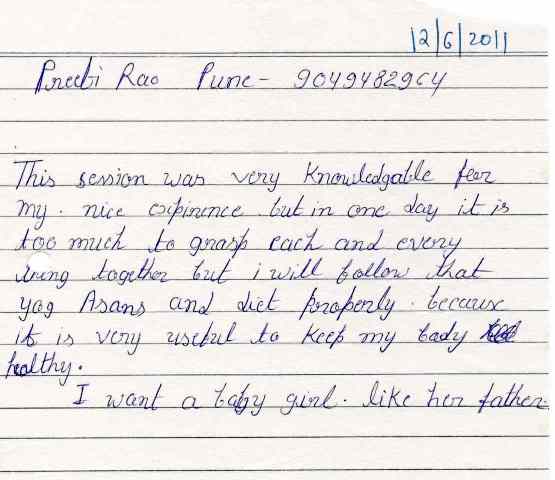 12/6/2011
Preeti Rao Pune - 9049482964
This session was very knowledgable fear
my. nice expirence but in one day it is
too much to grasp each and every
together but i will follow that
yog Asans and diet properly. because
it is very useful to keep my body
healthy.
I want a baby girl. like her father.